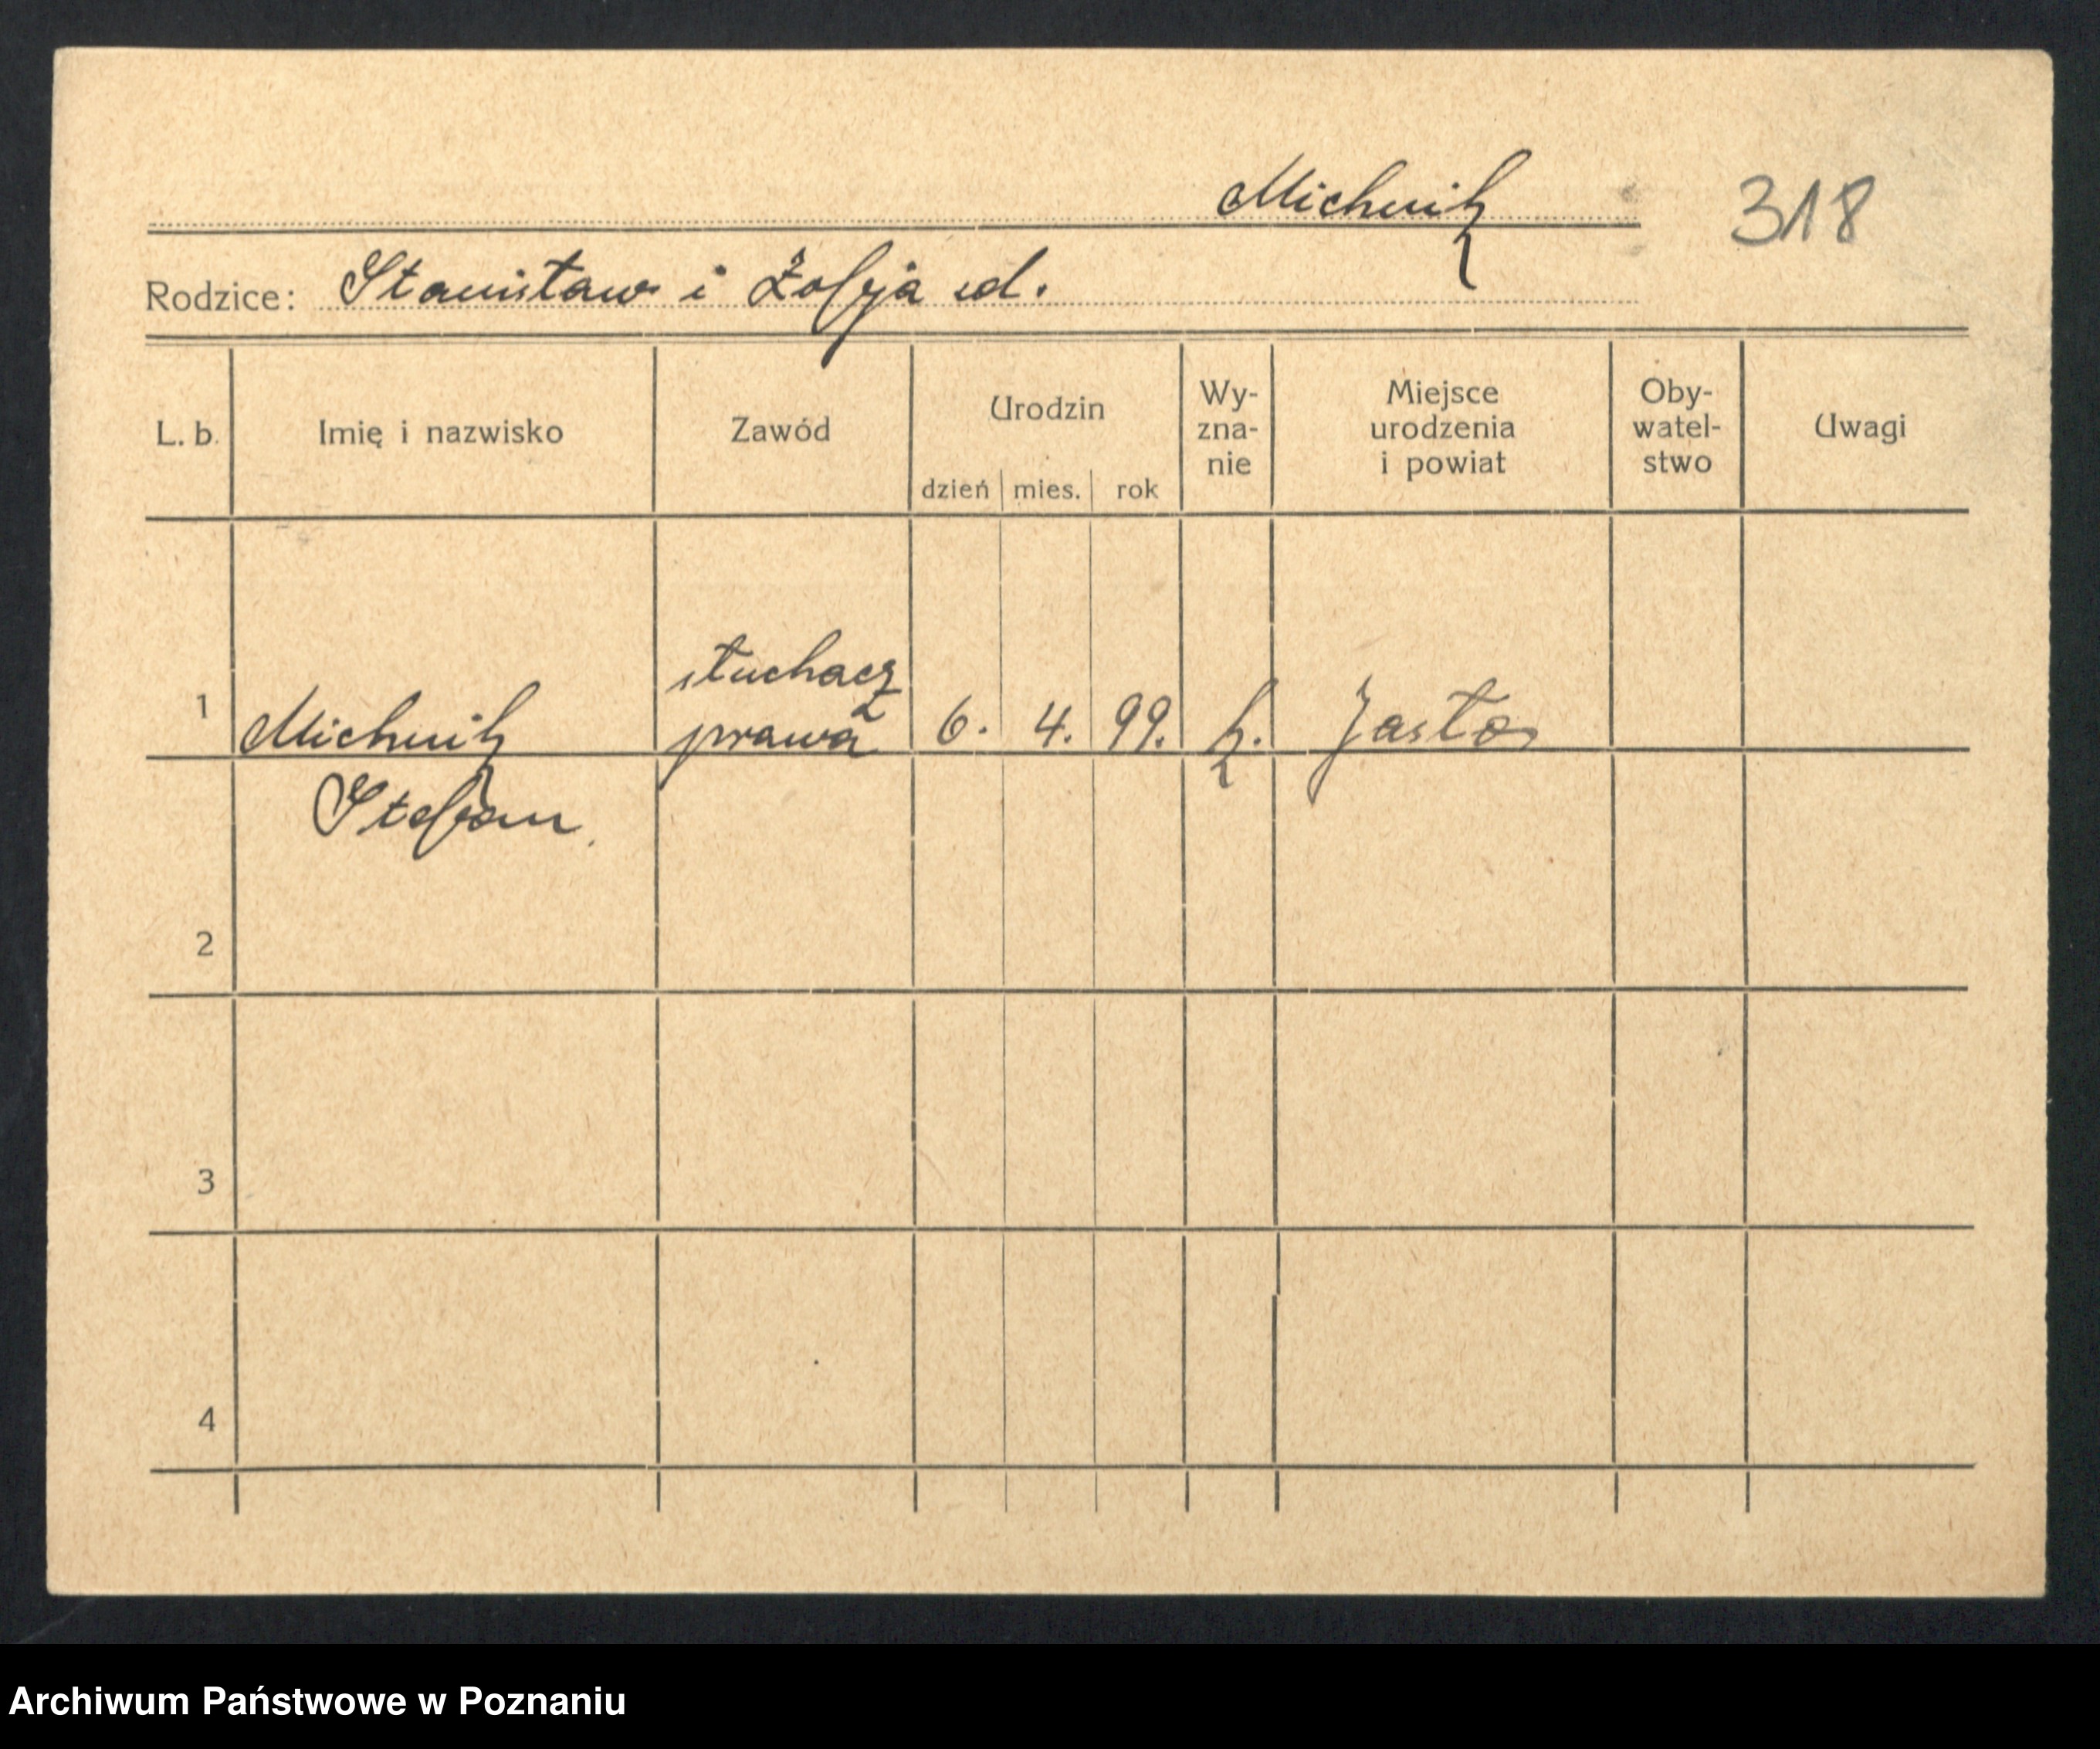 Michnik
318
Rodzice: Stanisław i Zofja ed.
L. b. Imię i nazwisko Zawód Urodzin dzień mies. rok Wy-zna-nie Miejsce urodzenia i powiat Oby-watel-stwo Uwagi
słuchacz
1 Michnik prawa 6. 4. 99. k. Jasło
Stefan
2
3
4
Archiwum Państwowe w Poznaniu